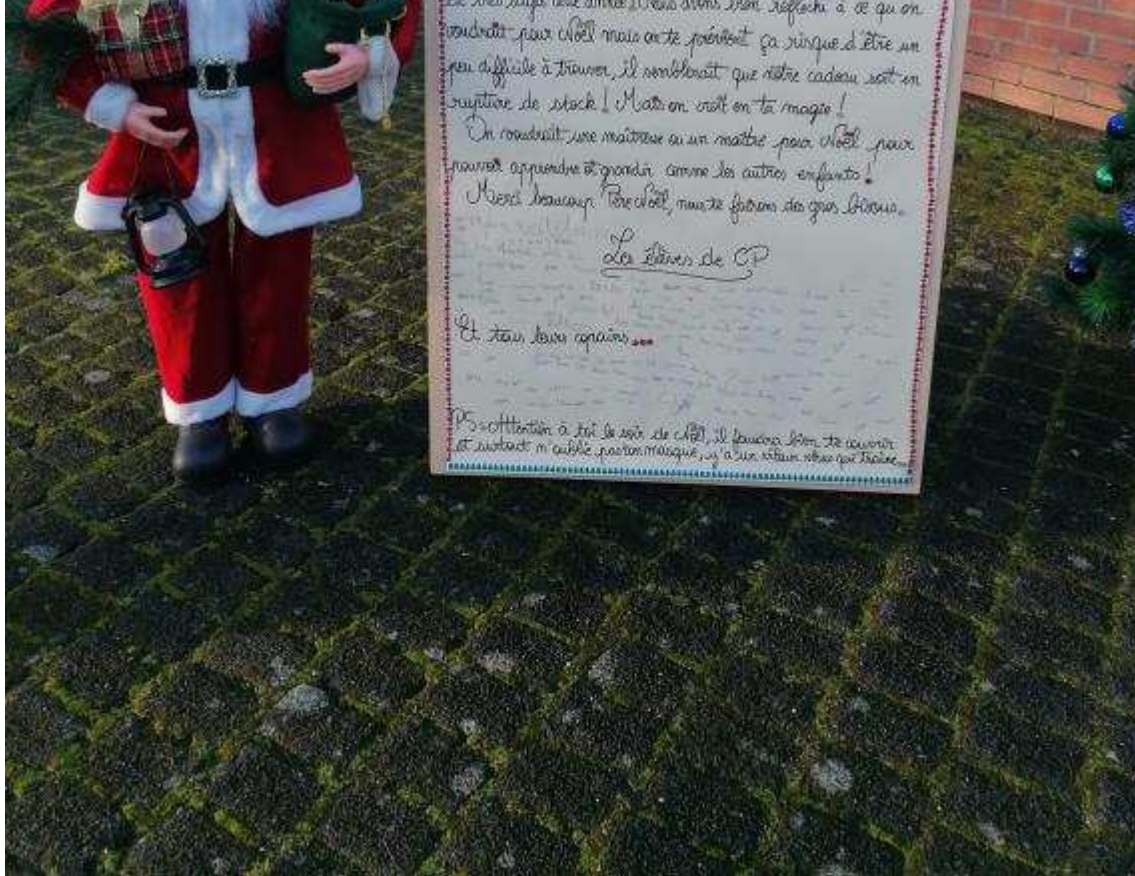 et très sages cette année. Nous avons bien réfléchi à ce qu'on
voudrait pour Noël mais on te prévient ça risque d'être un
peu difficile à trouver, il semblerait que notre cadeau soit en
rupture de stock ! Mais on croit en ta magie !
On voudrait une maîtresse ou un maître pour Noël pour
pouvoir apprendre et grandir comme les autres enfants !
Merci beaucoup Père Noël, nous te faisons des gros bisous.
Les élèves de CP
Et tous leurs copains...
PS : Attention à toi le soir de Noël, il faudra bien te couvrir
et surtout n'oublie pas ton masque, y'a un vilain virus qui traîne...